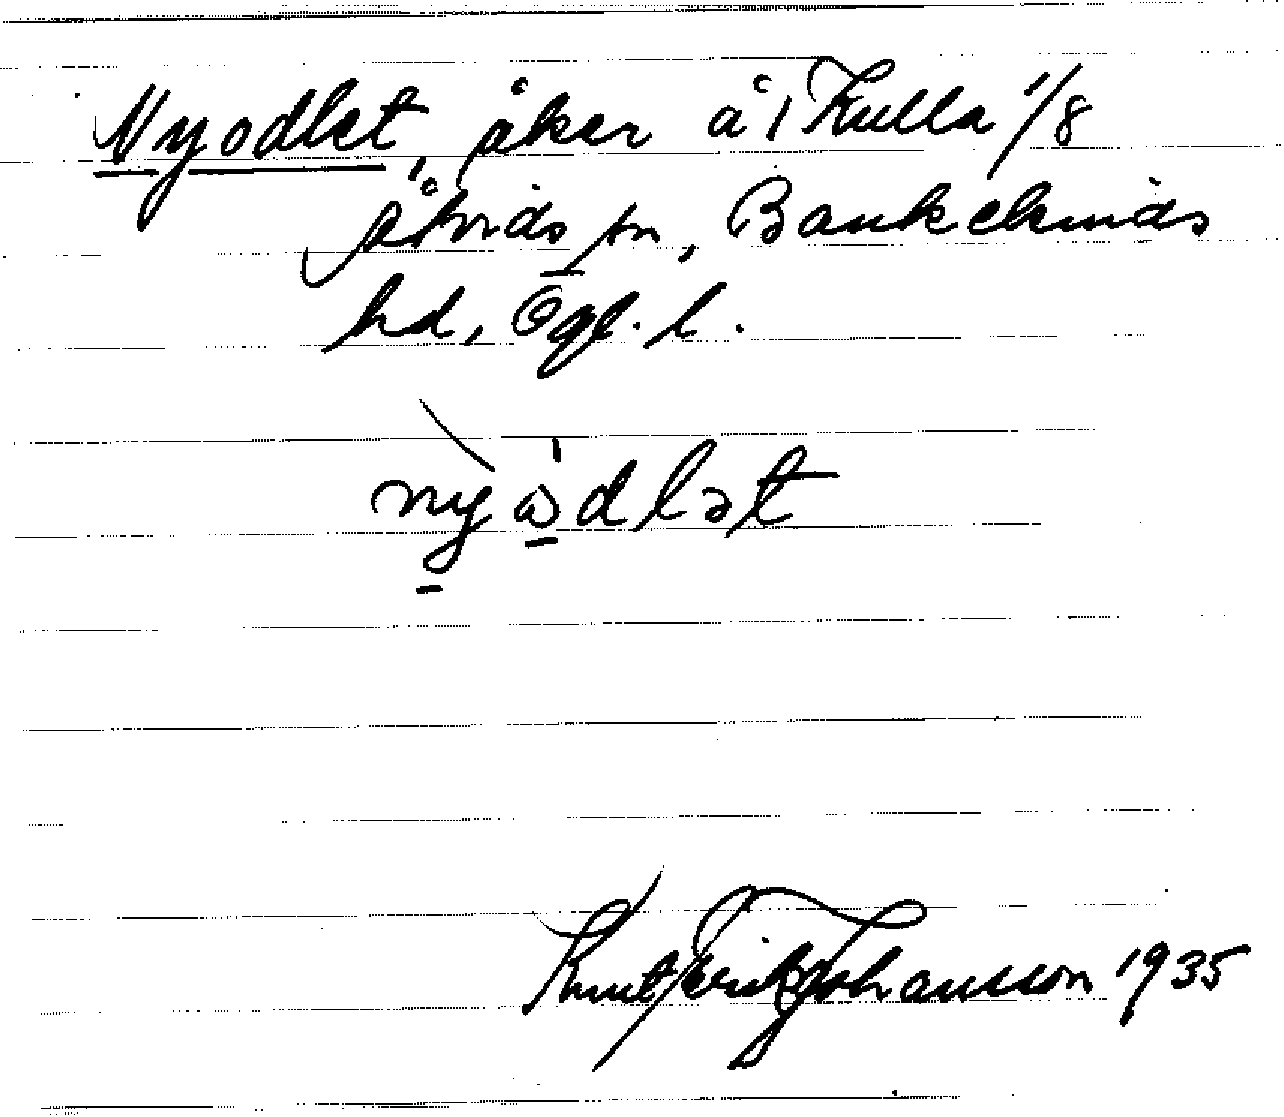 Nyodlet, åker å 1 Kulla 1/8
Åtvids sn, Bankekinds
hd, Ögl. l.
nyωdlət
Knut Erik Johansson 1935